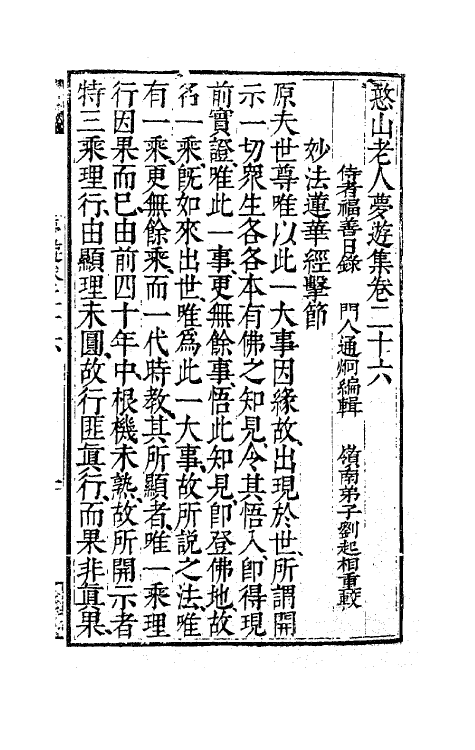 憨山老人夢遊集卷二十六
侍者福善日錄　門人通炯編輯　嶺南弟子劉起相重較
妙法蓮華經擊節
原夫世尊唯以此一大事因緣故出現於世所謂開
示一切衆生各各本有佛之知見令其悟入卽得現
前實證唯此一事更無餘事悟此知見卽登佛地故
名一乘旣如來出世唯爲此一大事故所說之法唯
有一乘更無餘乘而一代時教其所顯者唯一乘理
行因果而已由前四十年中根機未熟故所開示者
特三乘理行由顯理未圓故行匪眞行而果非眞果